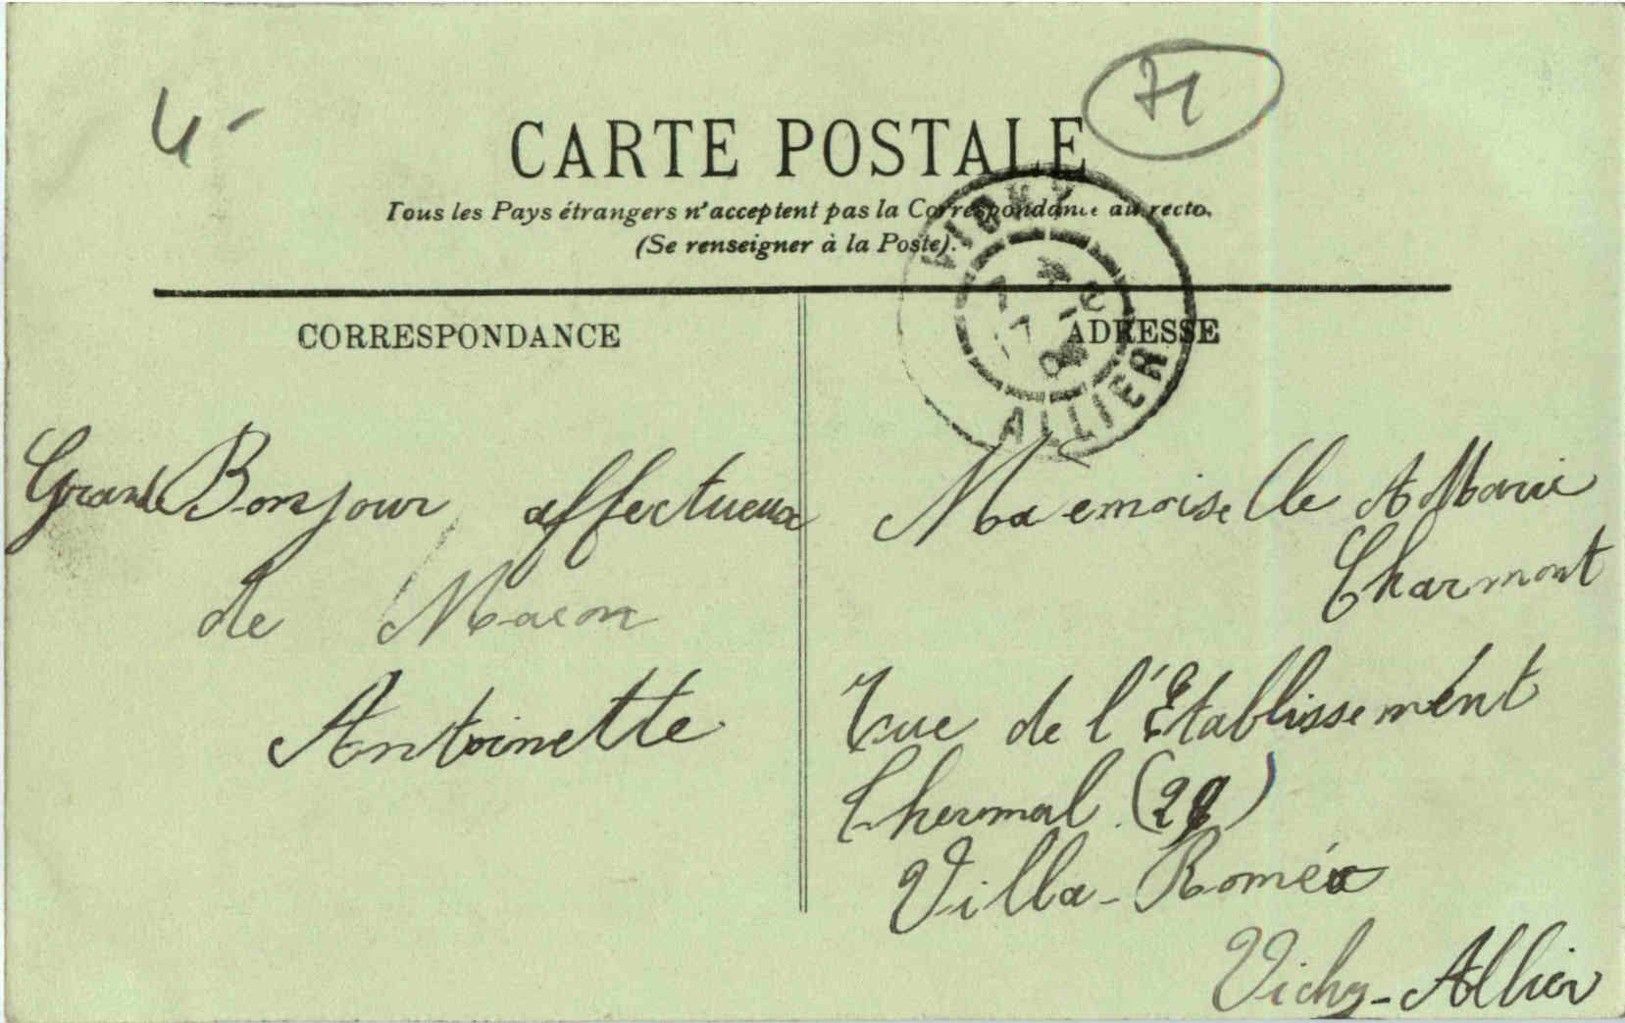 4-
71
CARTE POSTALE
Tous les Pays étrangers n'acceptent pas la Correspondance au recto.
(Se renseigner à la Poste).
VICHY
ALLIER
CORRESPONDANCE
ADRESSE
Grand Bonjour affectueux
de Macon
Antoinette
Maemoiselle A Marie
Charmont
rue de l'Etablissement
Thermal (29)
Villa-Roméo
Vichy-Allier